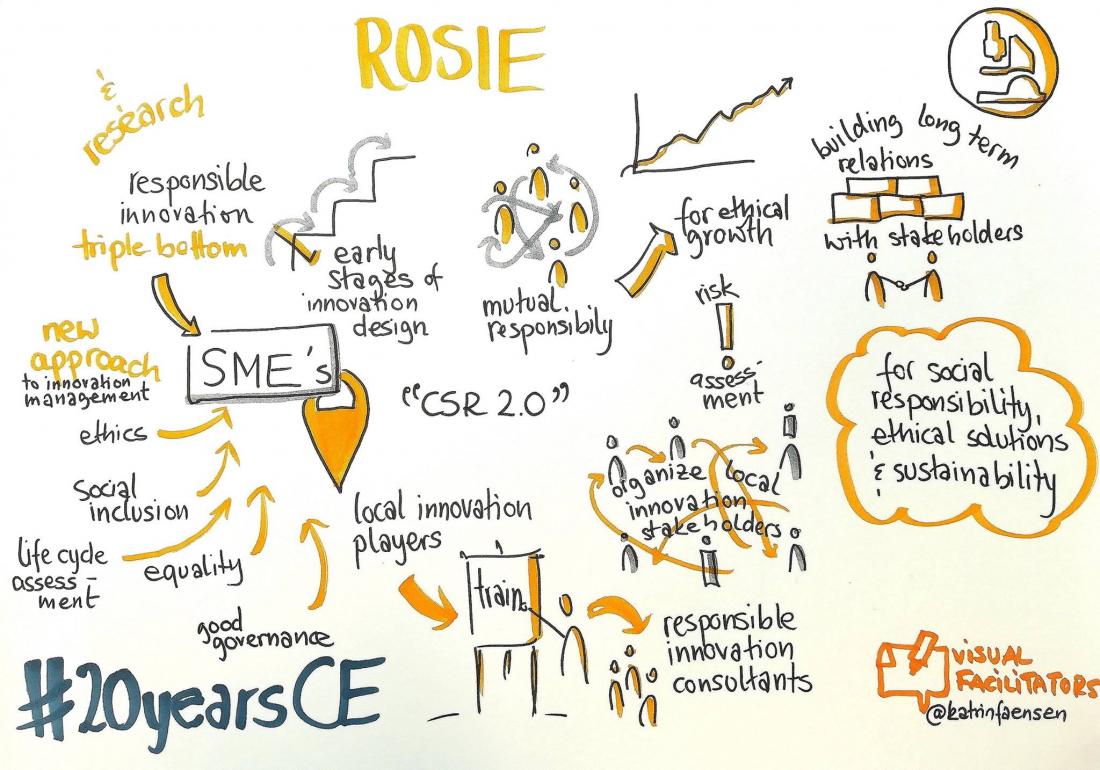 ROSIE
& research
responsible
innovation
triple bottom
early
stages of
innovation
design
mutual
responsibily
for ethical
growth
building long term
relations
with stakeholders
new
approach
to innovation
management
SME's
"CSR 2.0"
risk
!
assess-
ment
for social
responsibility,
ethical solutions
& sustainability
ethics
social
inclusion
life cycle
assess-
ment
equality
good
governance
local innovation
players
train
organize local
innovation
stakeholders
responsible
innovation
consultants
#20yearsCE
VISUAL
FACILITATORS
@katrinfaensen